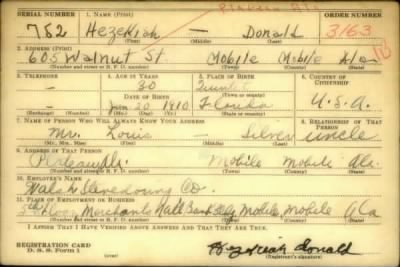 Plateau Ala
SERIAL NUMBER 1. NAME (Print) ORDER NUMBER
782 Hezekiah — Donald 3163
(First) (Middle) (Last)
2. ADDRESS (Print)
605 Walnut St Mobile Mobile Ala
(Number and street or R. F. D. number) (Town) (County) (State)
3. TELEPHONE 4. AGE IN YEARS 5. PLACE OF BIRTH 6. COUNTRY OF CITIZENSHIP
— 30
DATE OF BIRTH (Town or county)
Jan 20 1910 Florida U.S.A.
(Exchange) (Number) (Mo.) (Day) (Yr.) (State or country)
7. NAME OF PERSON WHO WILL ALWAYS KNOW YOUR ADDRESS 8. RELATIONSHIP OF THAT PERSON
Mr. Louis — Silver uncle
(Mr., Mrs., Miss) (First) (Middle) (Last)
9. ADDRESS OF THAT PERSON
Plateau Ala. Mobile Mobile Ala.
(Number and street or R. F. D. number) (Town) (County) (State)
10. EMPLOYER'S NAME
Walsh Stevedoring Co.
11. PLACE OF EMPLOYMENT OR BUSINESS
Floor Merchants Natl Bank Bldg Mobile, Mobile Ala
(Number and street or R. F. D. number) (Town) (County) (State)
I AFFIRM THAT I HAVE VERIFIED ABOVE ANSWERS AND THAT THEY ARE TRUE.
REGISTRATION CARD
D. S. S. Form 1
Hezekiah Donald
(Registrant's signature)